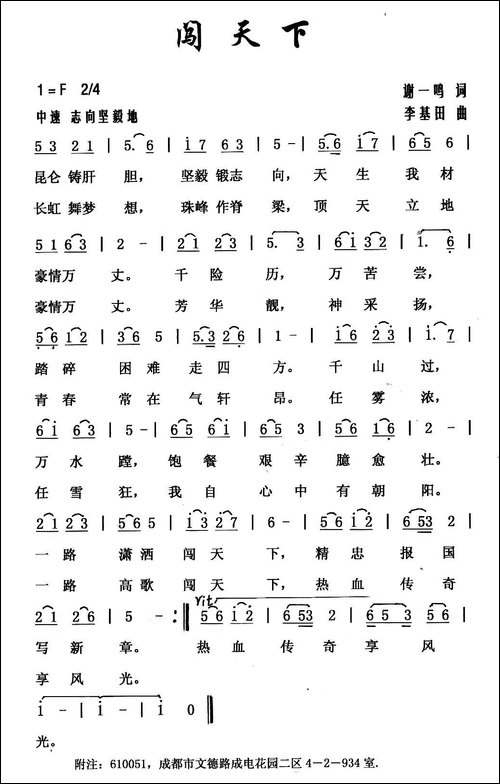 闯天下
1=F 2/4
谢一鸣 词
中速 志向坚毅地
李基田 曲
5 3 2 1 | 5. 6 | i 7 6 3 | 5 - | 5 - | i. 7 | 6 5 6 |
昆仑 铸肝 胆， 坚毅 锻志 向，天 生 我 材
长虹 舞梦 想， 珠峰 作脊 梁，顶 天 立 地
5 1 6 3 | 2 - | 2 1 2 3 | 5. 3 | 6 1 3 2 | 1. 6 |
豪情万 丈。 千 险 历， 万 苦 尝，
豪情万 丈。 芳 华 靓， 神 采 扬，
5 6 1 2 | 3 6 5 | 5.3 2 6 | 1 - | 1 6 2 3 | 1. 7 |
踏 碎 困 难 走 四 方。 千 山 过，
青 春 常 在 气 轩 昂。 任 雾 浓，
6 i 6 3 | 5 - | 6 5 6 i | 6 3 5 | 5 6 1 6 | 2 - |
万 水 蹚， 饱 餐 艰 辛 臆 愈 壮。
任 雪 狂， 我 自 心 中 有 朝 阳。
2 1 2 3 | 5 6 5 | i 3 2 7 | 6 - | 5 6 i 2 | 6 53 2 |
一 路 潇 洒 闯 天 下， 精 忠 报 国
一 路 高 歌 闯 天 下， 热 血 传 奇
2 1 2 6 | 5 - :‖ 5 6 i 2 | 6 53 2 | 6 5 3 |
写 新 章。 热 血 传 奇 享 风
享 风 光。
i - | i - | i 0 ‖
光。
附注：610051，成都市文德路成电花园二区 4－2－934 室.